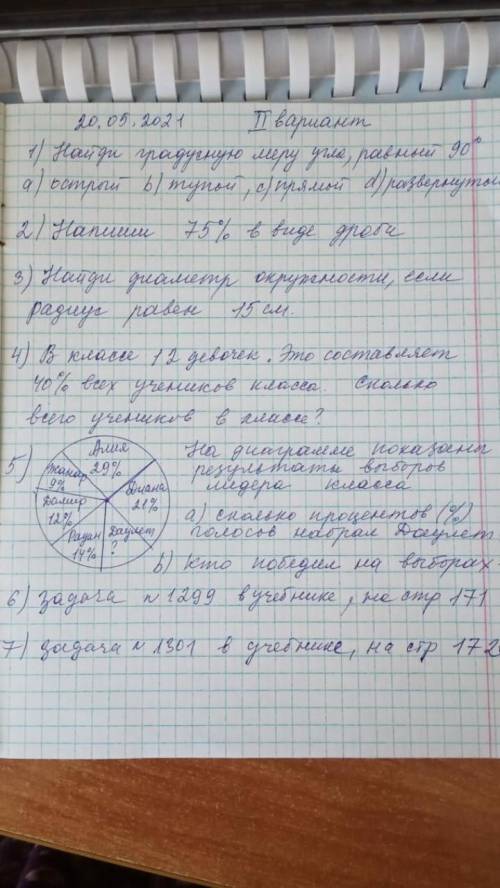 20.05.2021 II вариант
1) Найди градусную меру угла, равный 90°
a) острый b) тупой, c) прямой d) развернутый
2) Напиши 75% в виде дроби
3) Найди диаметр окружности, если
радиус равен 15 см.
4) В классе 12 девочек. Это составляет
40% всех учеников класса. Сколько
всего учеников в классе?
5) На диаграмме показаны
результаты выборов
лидера класса
Алия
29%
Диана
21%
Даулет
?
Раджан
14%
Жанар
9%
12%
a) сколько процентов (%)
голосов набрал Даулет
b) Кто победил на выборах
6) Задача N 1299 в учебнике, на стр 171
7) Задача N 1301 в учебнике, на стр 172